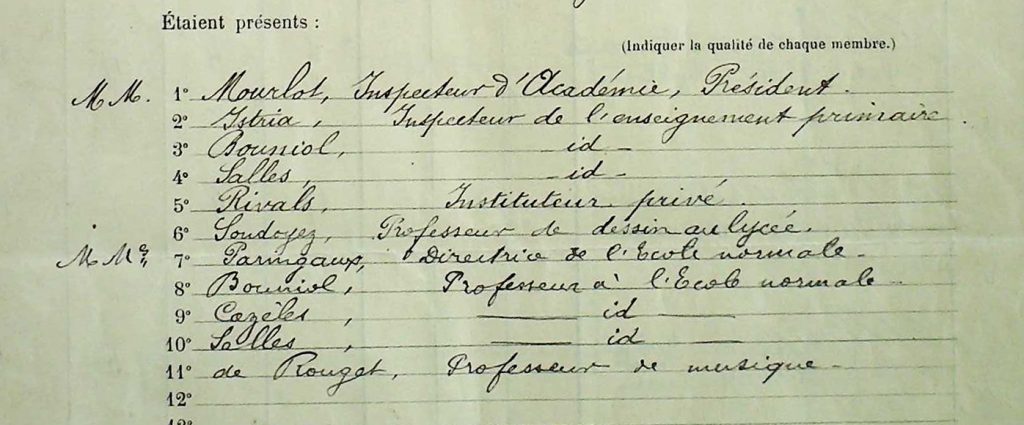 Étaient présents :
(Indiquer la qualité de chaque membre.)
MM. 1° Mourlot, Inspecteur d'Académie, Président.
2° Istria, Inspecteur de l'enseignement primaire.
3° Bouniol, — id —
4° Salles, — id —
5° Rivals, Instituteur privé.
6° Soudoyez, Professeur de dessin au lycée.
MMes, 7° Paringaux, Directrice de l'Ecole normale.
8° Bouniol, Professeur à l'Ecole normale
9° Cazèles, — id —
10° Salles, — id —
11° de Rouget, Professeur de musique
12°